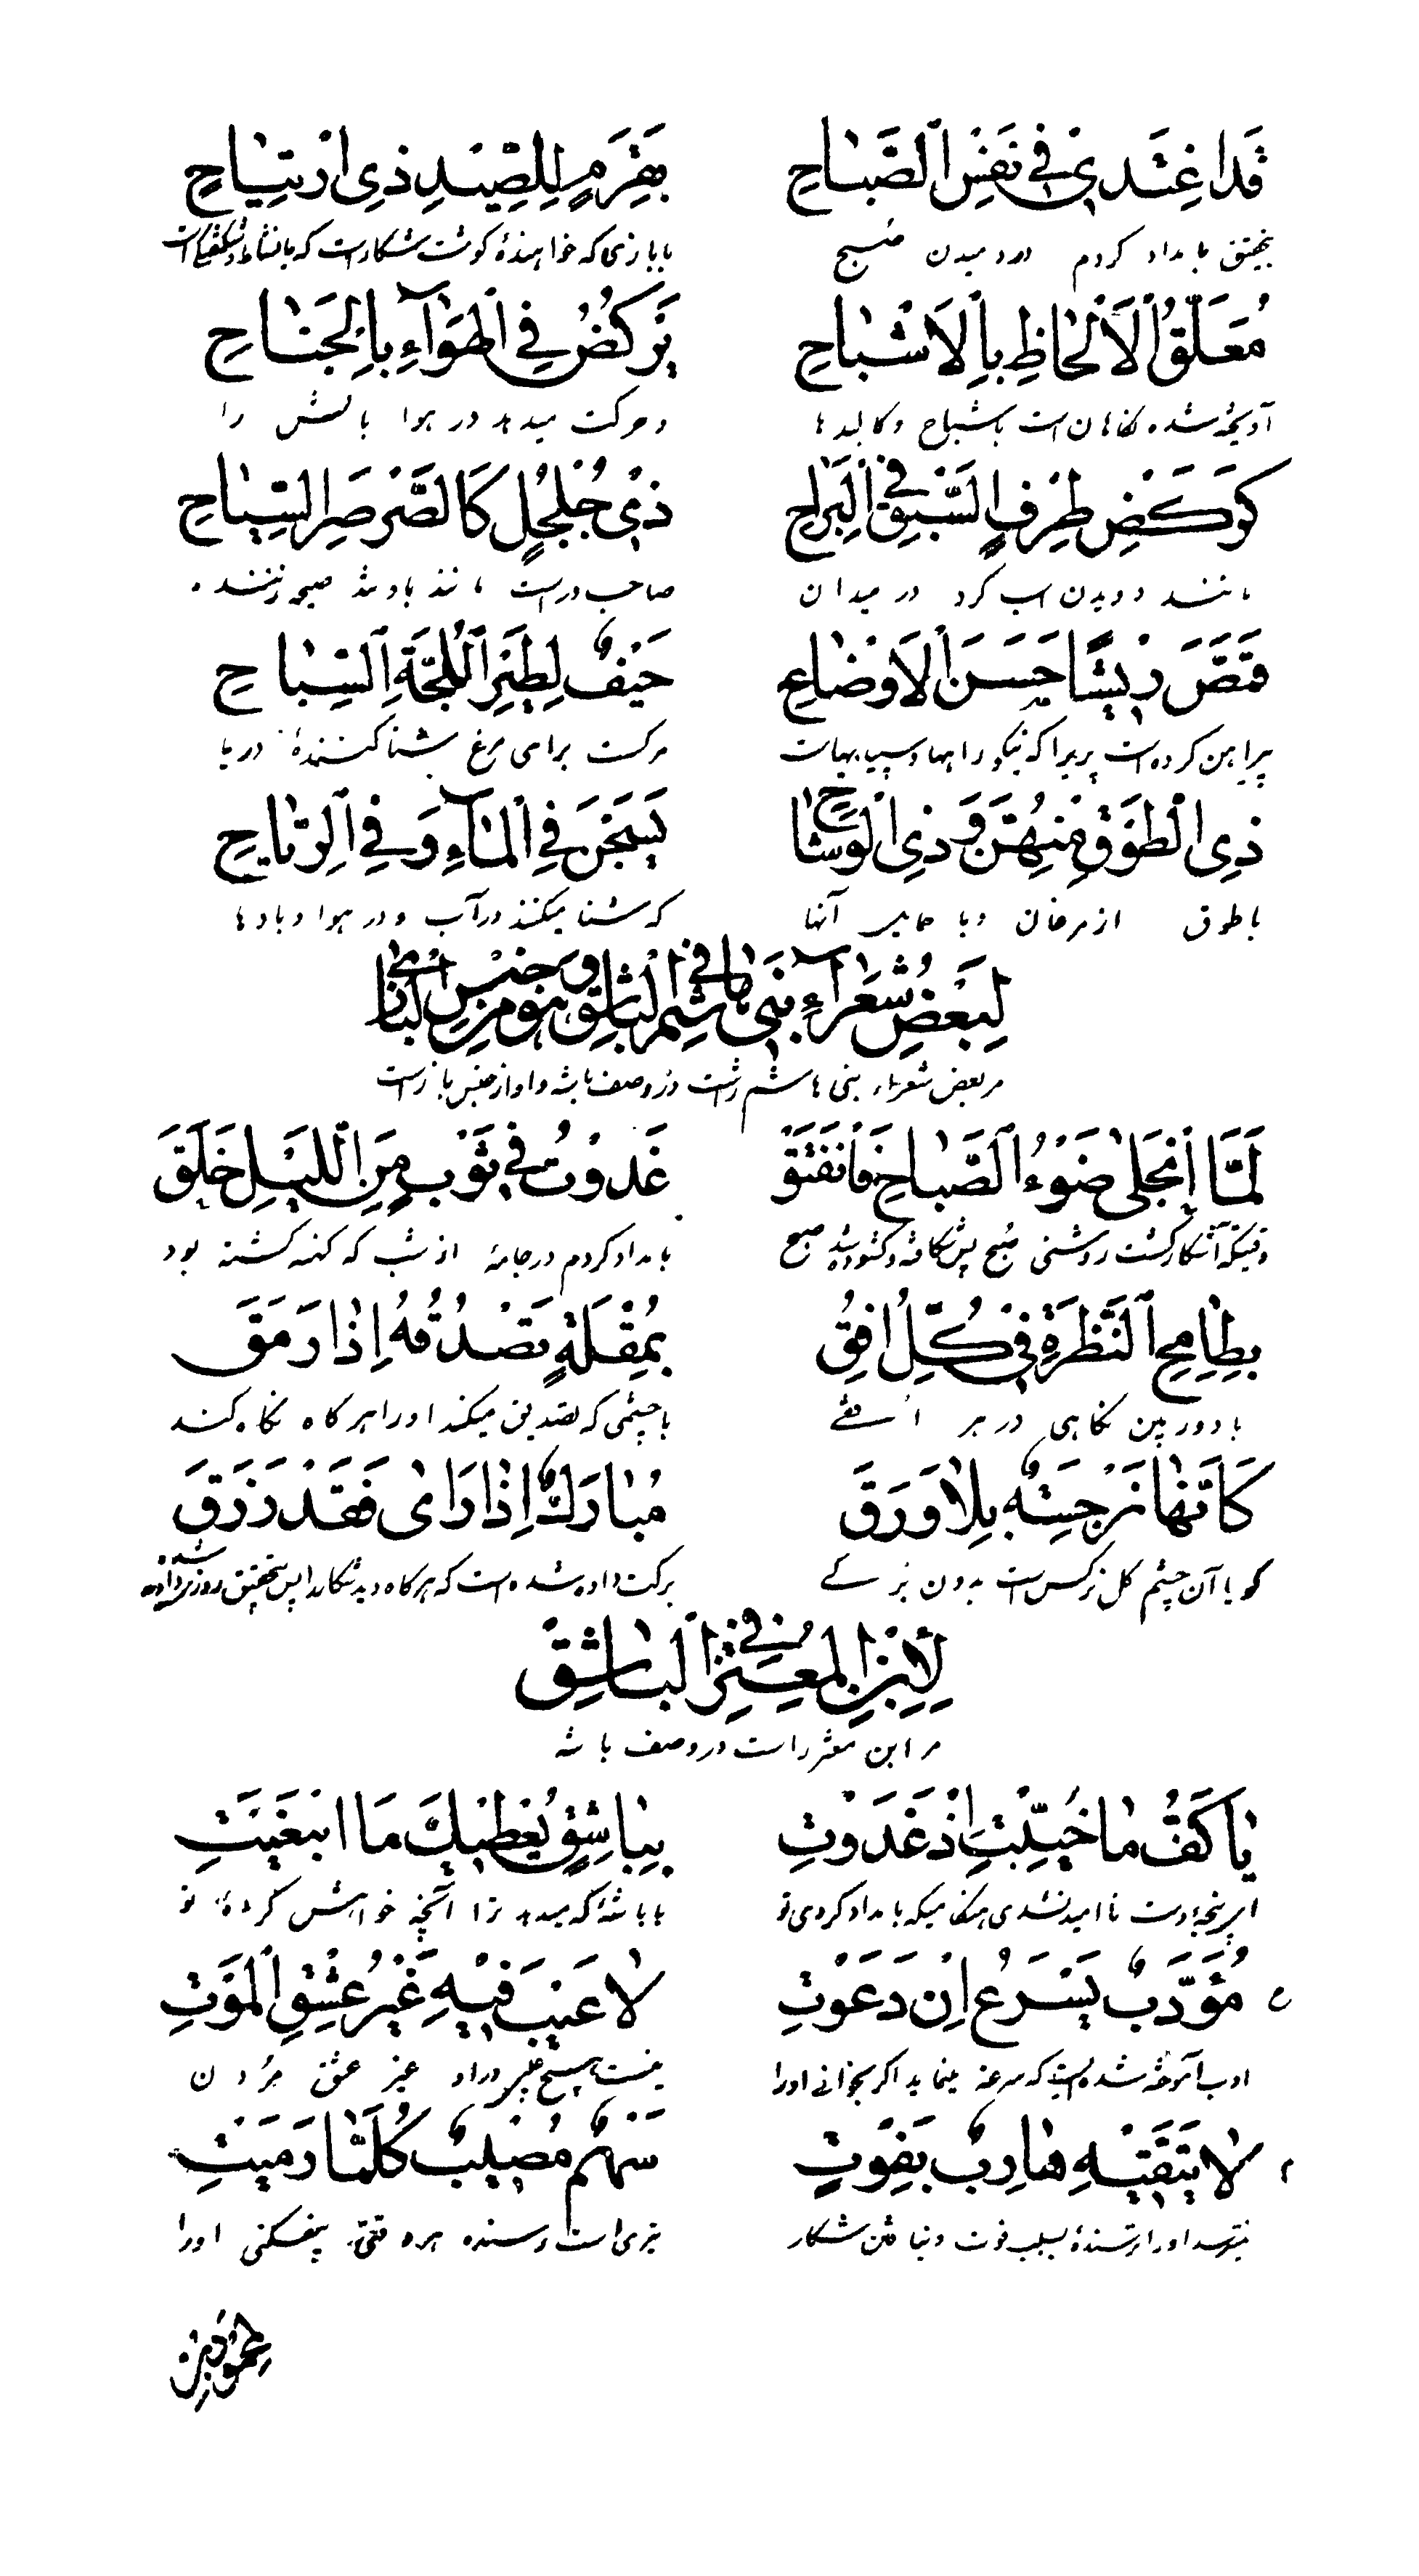 قَد اَغتَدي في نَفَسِ الصَّباحِ بِقَرِمٍ لِلصَّيدِ ذِي ارتِياحِ
بتحقیق بامداد کردم در دمیدن صبح با بازی که خواهندهٔ گوشت شکار است که با نشاط و
مُعَلَّقُ الاَلحاظِ بِالاَشباحِ يَركُضُ فِي الهَوآءِ بِالجَناحِ
آویخته شده نگاهان است باشباح و کالبدها و حرکت میدهد در هوا بالش را
كَرَكضِ طِرفِ السَّبقِ في البَراحِ ذي جُلجُلٍ كَالصَّرصَرِ
مانند دویدن اسب کرد در میدان صاحب است مانند باد تند صیحه زننده
قَمَّصَ ريشًا حَسَنَ الاَوضاعِ حَيفٌ لِطَيرِ اللُّجَّةِ السِّباحِ
پیراهن کرده است پر برای مرغ شنا کنندهٔ دریا
ذِي الطَّوقِ مِنهُنَّ وَ ذِي الوِشاحِ يَسبَحنَ فِي المآءِ وَ فِي الرِّياحِ
با طوق از مرغان و با حمایل آنها که شنا میکنند در آب و در هوا و بادها
لِبَعضِ شُعَرآءِ بَني هاشِم في الباشِق وَ هُوَ مِن جِنسِ البازي
مر بعض شعراء بنی هاشم راست در وصف باشه و او از جنس باز است
لَمَّا انجَلى ضَوءُ الصَّباحِ فَانفَتَق غَدَوتُ في ثَوبٍ مِنَ اللَّيلِ خَلَق
وقتیکه آشکار گشت روشنی صبح پس شکافته و گشوده شد صبح بامداد کردم در جامهٔ از شب که کهنه گشته بود
بِطامِحِ النَّظرَةِ في كُلِّ اُفُق بِمُقلَةٍ تَصدُقُهُ اِذا رَمَق
با دور بین نگاهی در هر افقے با چشمی که تصدیق میکند او را هر گاه نگاه کند
كَاَنَّها نَرجِسَةٌ بِلا وَرَق مُبارَكٌ اِذا رَاى فَقَد رَزَق
گویا آن چشم گل نرگس است بدون برگے برکت داده شده است که هر گاه دید شکار را پس بتحقیق روزی داده شده
لِابنِ المُعتَزِّ في الباشِق
مر ابن معتز راست در وصف باشه
يا كَفُّ ما خُيِّبتِ اِذ غَدَوتِ بِباشِقٍ يُعطيكَ مَا ابتَغَيتِ
ای پنجه دست نا امید نشدی هنگامیکه بامداد کردی تو با باشهٔ که میدهد ترا آنچه خواهش کردهٔ تو
مُؤَدَّبٌ يَسرَعُ اِن دَعَوتِ لا عَيبَ فيهِ غَيرُ عِشقِ المَوتِ
ادب آموخته شده است که سرعت مینماید اگر بخوانے او را نیست هیچ عیب در او غیر عشق مردن
لا يَتَّقيهِ هارِبٌ بِفَوتٍ سَهمٌ مُصيبٌ كُلَّما رَمَيتِ
او را ترسندهٔ بسبب فوت و نیافتن شکار تیری است رسنده هر وقتی بیفکنی او را